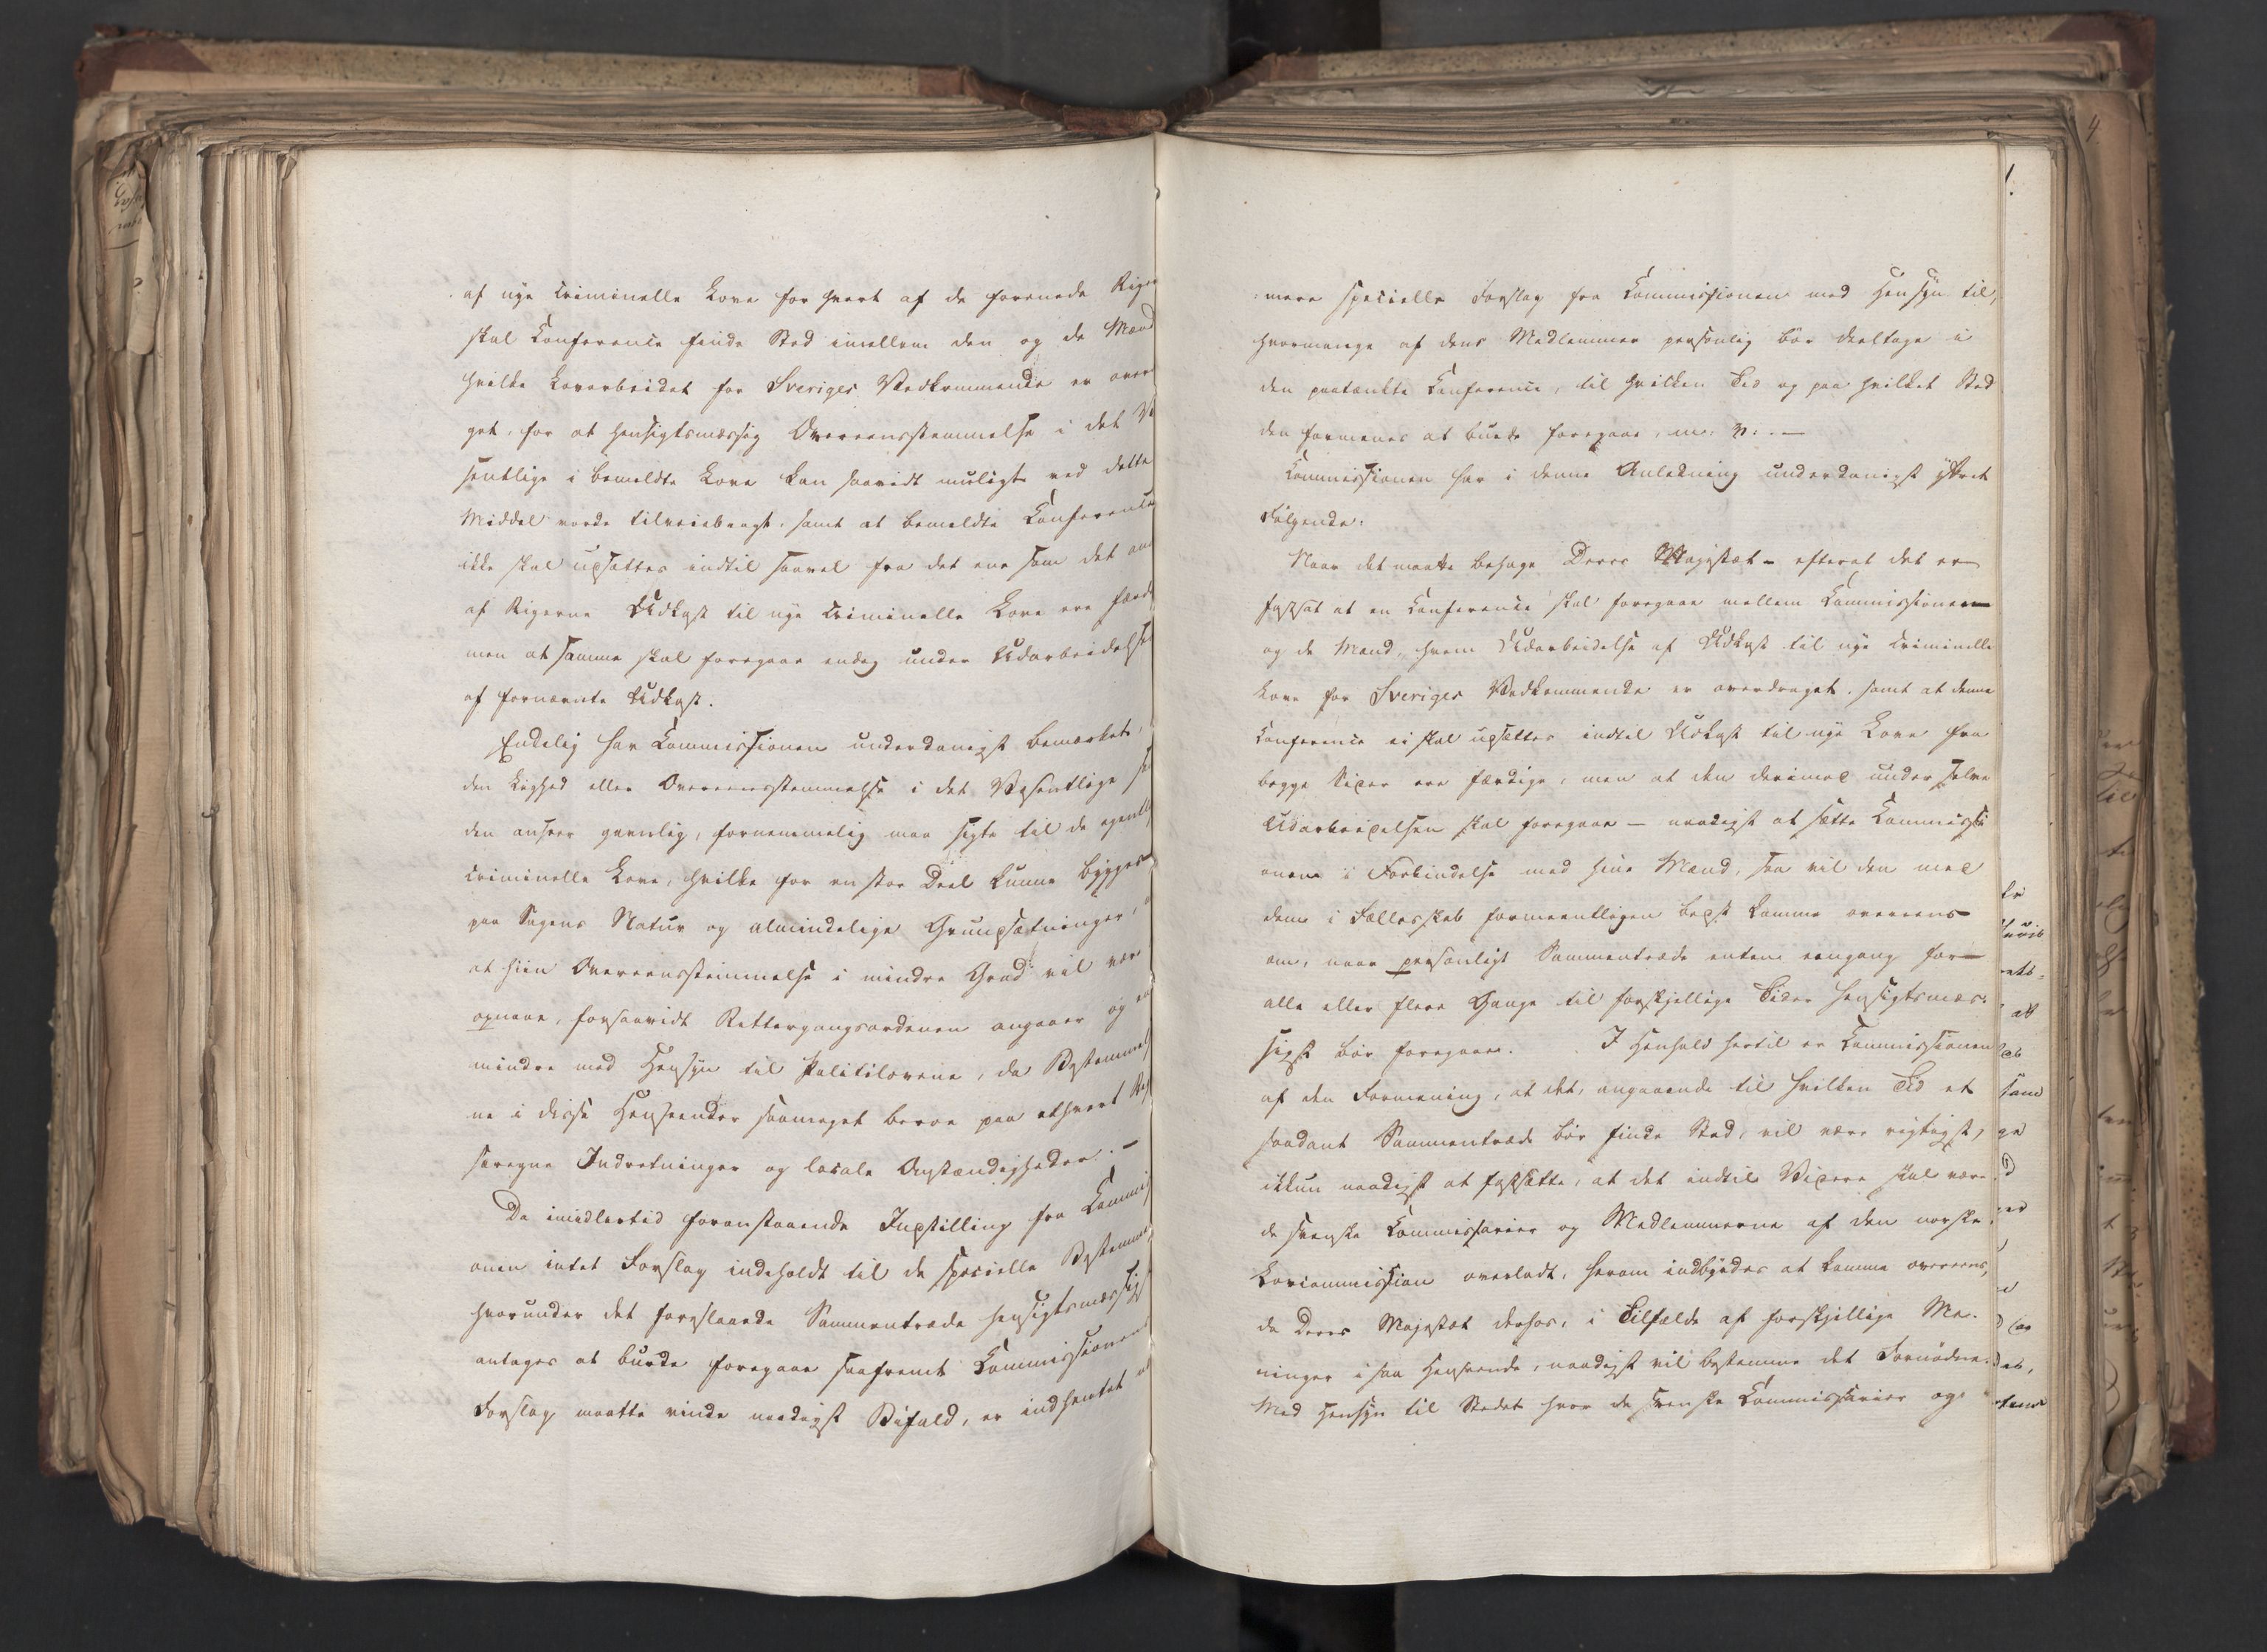 af nye criminelle Love for hvert af de forenede Riger
skal Conference finde Sted imellem den og de Mænd
hvilke Lovarbeidet for Sveriges Vedkommende er over
get, for at hensigtsmæssig Overeensstemmelse i det V
sentlige i bemeldte Love kan saavidt muligt ved dette
Middel vorde tilveiebragt, samt at bemeldte Conference
ikke skal udsættes indtil saavel fra det ene som det an
af Rigerne Udkast til nye criminelle Love ere færd
men at samme skal foregaae endog under Udarbeidelse
af fornævnte Udkast.
Endelig har Commissionen underdanigst bemærket,
den Lighed eller Overeensstemmelse i det Væsentlige s
den ansees gavnlig, fornemmelig maa sigte til de egentl
criminelle Love, hvilke for en stor Deel kunne bygges
paa Sagens Natur og almindelige Grundsætninger,
at hiin Overeensstemmelse i mindre Grad vil være
opnaae, forsaavidt Rettergangsordenen angaaer og en
mindre med Hensyn til Politilovene, da Bestemmel
ne i disse Henseender saameget beroe paa ethvert Ri
særegne Indretninger og locale Omstændigheder. —
Da imidlertid foranstaaende Indstilling fra Commis
onen intet Forslag indeholdt til de specielle Bestemme
hvorunder det foreslaaede Sammentræde hensigtsmæssigst
antages at burde foregaae saafremt Commissionens
Forslag maatte vinde naadigst Bifald, er indhentet
mere specielle Forslag fra Commissionen med Hensyn til,
hvormange af dens Medlemmer personlig bør deeltage i
den paatænkte Conference, til hvilken Tid og paa hvilket Sted
den formenes at burde foregaae, m: v: . —
Commissionen har i denne Anledning underdanigst yttret
Følgende:
Naar det maatte behage Deres Majestæt - efterat det er
fastsat at en Conference skal foregaae mellem Commissionen
og de Mænd, hvem Udarbeidelse af Udkast til nye criminelle
Love for Sveriges Vedkommende er overdraget, samt at denne
Conference ei skal udsættes indtil Udkast til nye Love fra
begge Sider ere færdige, men at den derimod under selve
Udarbeidelsen skal foregaae — naadigst at sætte Commissi
onen i Forbindelse med hine Mænd, saa vil den med
dem i Fællesskab formeentligen bedst komme overeens
om, naar personligt Sammentræde enten eengang for
alle eller flere Gange til forskjellige Tider hensigtsmæs:
sigst bør foregaae. I Henhold hertil er Commissionen
af den Formening, at det, angaaende til hvilken Tid et
saadant Sammentræde bør finde Sted, vil være rigtigst,
ikkun naadigst at fastsætte, at det indtil Videre skal være
de svenske Commissarier og Medlemmerne af den norske
Lovcommission overladt, herom indbyrdes at komme overeens,
da Deres Majestæt derhos, i Tilfælde af forskjellige Me-
ninger i saa Henseende, naadigst vil bestemme det Fornødne.
Med Hensyn til Stedet hvor de svenske Commissarier og